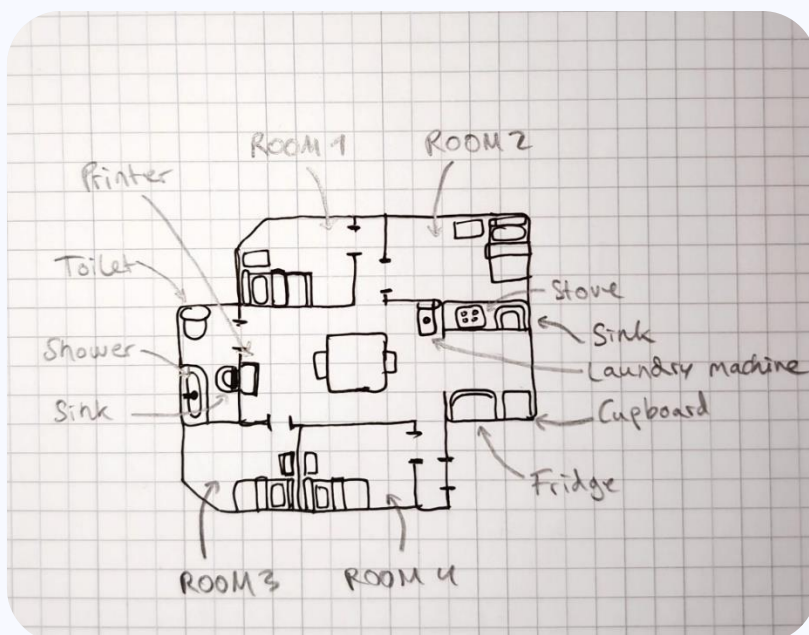 ROOM 1
ROOM 2
Printer
Toilet
Stove
Sink
Shower
Laundry machine
Sink
Cupboard
Fridge
ROOM 3
ROOM 4